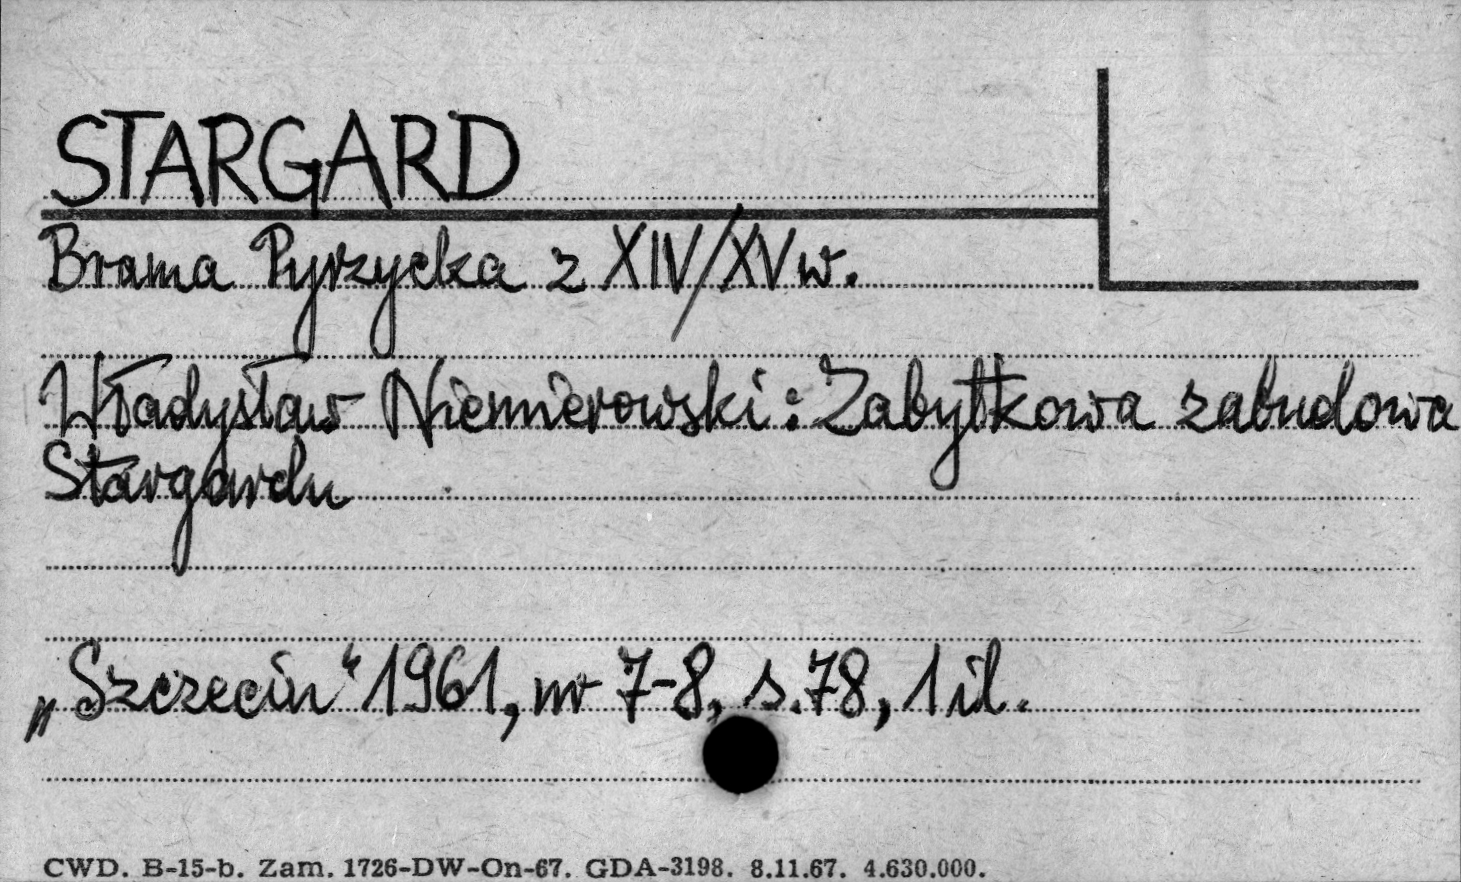 STARGARD
Brama Pyrzycka z XIV/XV w.
Władysław Niemierowski: Zabytkowa zabudowa
Stargardu
„Szczecin" 1961, nr 7-8, s.78, 1 il.
CWD. B-15-b. Zam. 1726-DW-On-67. GDA-3198. 8.11.67. 4.630.000.